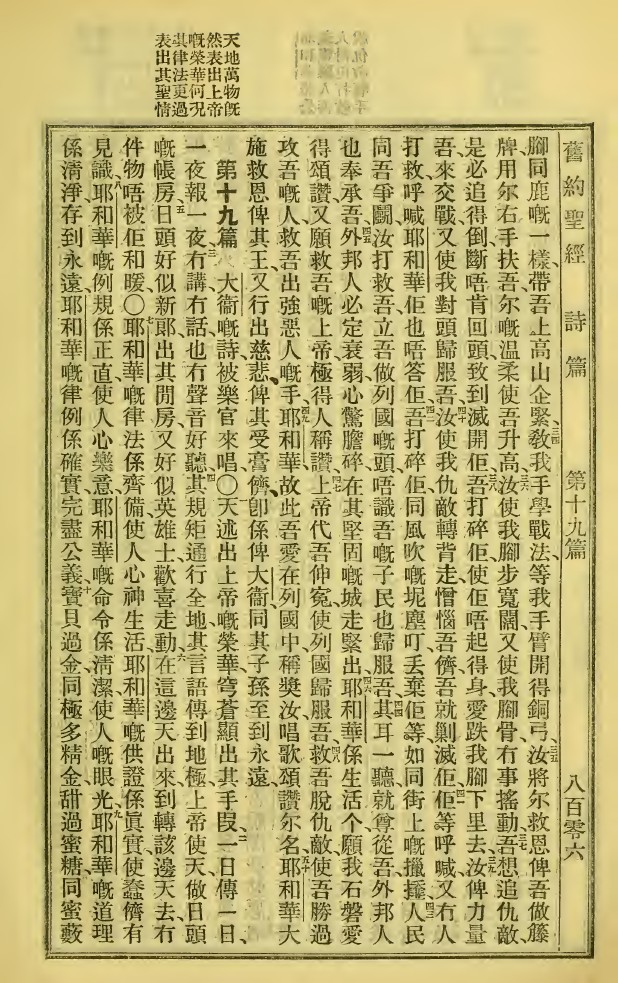 舊約聖經 詩篇 第十九篇 八百零六
天地萬物旣
然表出上帝
嘅榮華何况
其律法更過
表出其聖情
腳同鹿嘅一樣、帶吾上高山企緊、三四教我手學戰法、等我手臂開得銅弓、三五汝將尔救恩俾吾做籐
牌用尔右手扶吾尔嘅温柔使吾升高、三六汝使我腳步寬闊又使我腳骨冇事搖動、三七吾想追仇敵、
是必追得倒斷唔肯回頭致到滅開佢、三八吾打碎佢使佢唔起得身、愛跌我腳下里去、三九汝俾力量
吾來交戰、又使我對頭歸服吾、四十汝使我仇敵轉背走、憎惱吾儕吾就剿滅佢、四一佢等呼喊又冇人
打救、呼喊耶和華佢也唔答佢、四二吾打碎佢同風吹嘅坭塵、叮丢棄佢等如同街上嘅𢶍𢶍、四三人民
同吾爭鬭汝打救吾、立吾做列國嘅頭、唔識吾嘅子民也歸服吾、四四其耳一聽就尊從吾、外邦人
也奉承吾、四五外邦人必定衰弱、心驚膽碎在其堅固嘅城走緊出、四六耶和華係生活个、願我石磐愛
得頌讚、又願救吾嘅上帝極得人稱讚、四七上帝代吾伸寃、使列國歸服吾、四八救吾脫仇敵、使吾勝過
攻吾嘅人、救吾出強惡人嘅手、四九耶和華故此吾愛在列國中稱獎汝、唱歌頌讚尔名、五十耶和華大
施救恩俾其王、又行出慈悲俾其受膏儕、卽係俾大衛同其子孫至到永遠、
第十九篇 大衛嘅詩被樂官來唱〇一天述出上帝嘅榮華、穹蒼顯出其手段、二一日傳一日、
一夜報一夜、三冇講冇話也冇聲音好聽、四其規矩通行全地、其言語傳到地極、上帝使天做日頭
嘅帳房、五日頭好似新郎出其閒房、又好似英雄士歡喜走動、六在這邊天出來到轉該邊天去、冇
件物唔被佢和暖、〇七耶和華嘅律法係齊備、使人心神生活、耶和華嘅供證係眞實、使蠢儕有
見識、八耶和華嘅例規係正直、使人心樂意、耶和華嘅命令係淸潔、使人嘅眼光、九耶和華嘅道理
係淸淨、存到永遠、耶和華嘅律例係確實、完盡公義、十寶貝過金、同極多精金、甜過蜜糖、同蜜藪